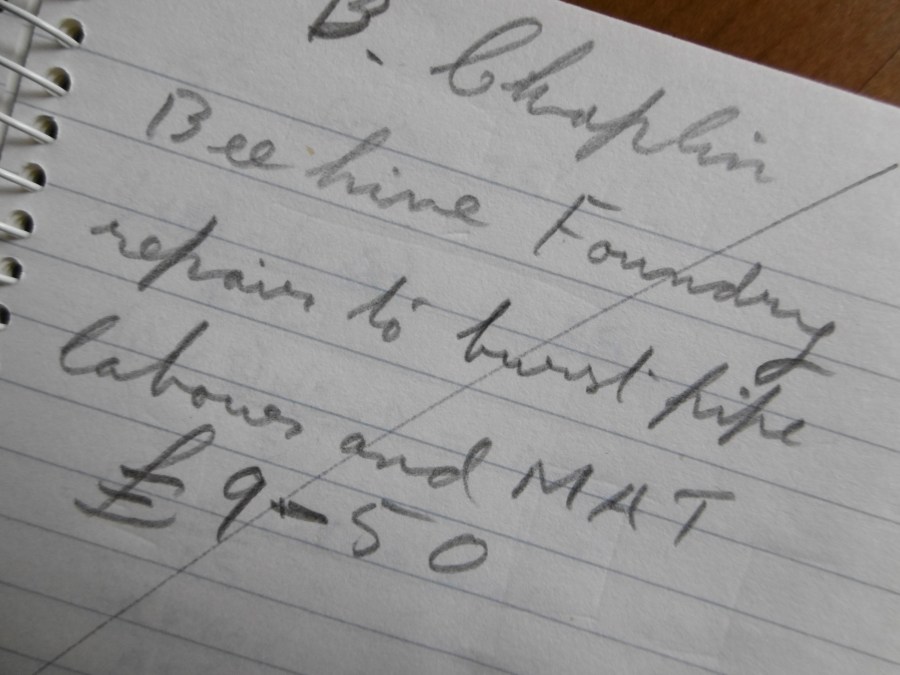 B. Chaplin
Bee hive Foundry
repairs to burst pipe
labour and MAT
£9-50